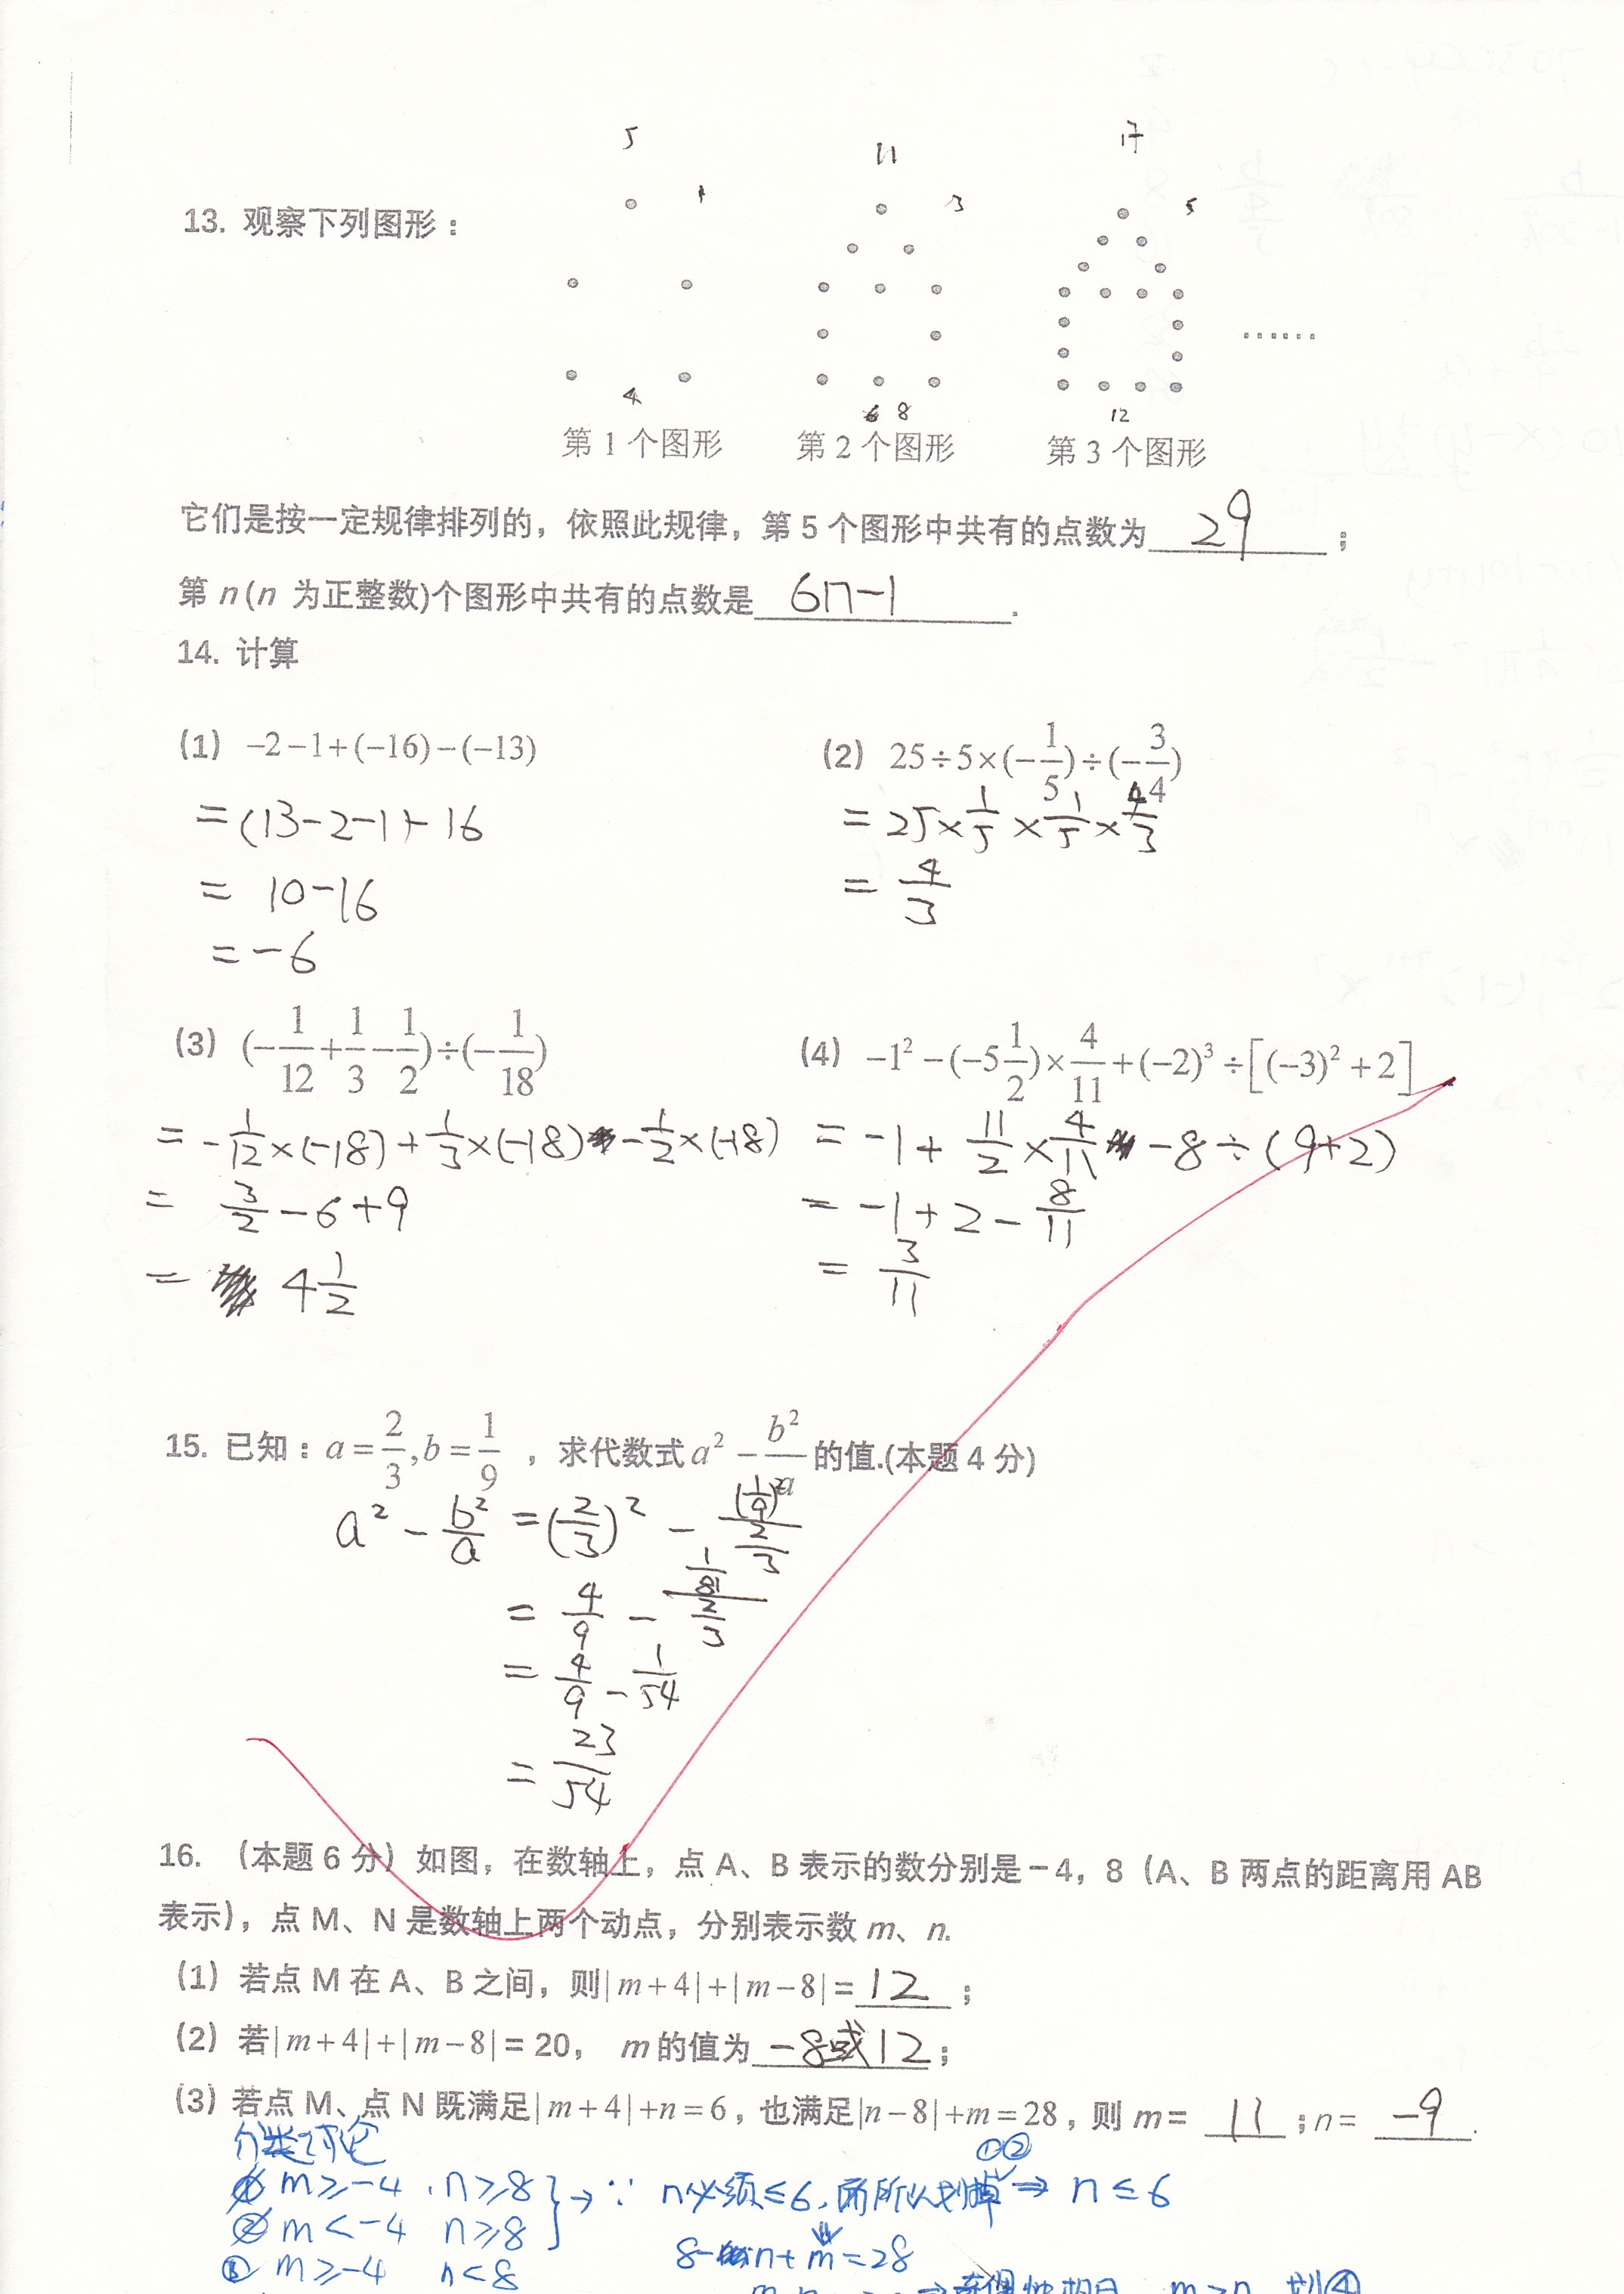 5 11 17
1 3 5
13. 观察下列图形：
……
4 8 12
第 1 个图形 第 2 个图形 第 3 个图形
它们是按一定规律排列的，依照此规律，第 5 个图形中共有的点数为 29 ；
第 n (n 为正整数)个图形中共有的点数是 6n-1 .
14. 计算
(1) -2-1+(-16)-(-13)
(2) 25÷5×(-1/5)÷(-3/4)
=(13-2-1)-16
=25×1/5×1/5×4/3
= 10-16
= 4/3
= -6
(3) (-1/12+1/3-1/2)÷(-1/18)
(4) -1²-(-5 1/2)×4/11+(-2)³÷[(-3)²+2]
= -1/12×(-18)+1/3×(-18)-1/2×(-18)
= -1+11/2×4/11-8÷(9+2)
= 3/2-6+9
= -1+2-8/11
= 4 1/2
= 3/11
15. 已知：a=2/3,b=1/9 ，求代数式 a²-b²/a 的值.(本题 4 分)
a²-b²/a=(2/3)²-(1/9)²/(2/3)
= 4/9-(1/81)/(2/3)
= 4/9-1/54
= 23/54
16. （本题 6 分）如图，在数轴上，点 A、B 表示的数分别是－4，8（A、B 两点的距离用 AB
表示），点 M、N 是数轴上两个动点，分别表示数 m、n.
(1) 若点 M 在 A、B 之间，则|m+4|+|m-8|= 12 ；
(2) 若|m+4|+|m-8|= 20， m 的值为 -8或12 ；
(3) 若点 M、点 N 既满足|m+4|+n=6，也满足|n-8|+m=28，则 m= 11 ；n= -9 .
分类讨论
① m≥-4，n≥8
②  m<-4 n≥8
→ ∵ n必须≤6，所以划掉①② ⇒ n≤6
③ m≥-4 n<8
8-n+m=28